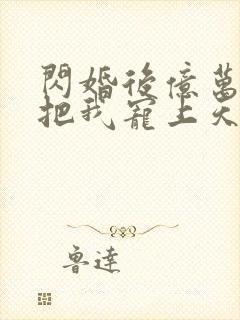 閃婚後億萬
把我寵上天
魯達